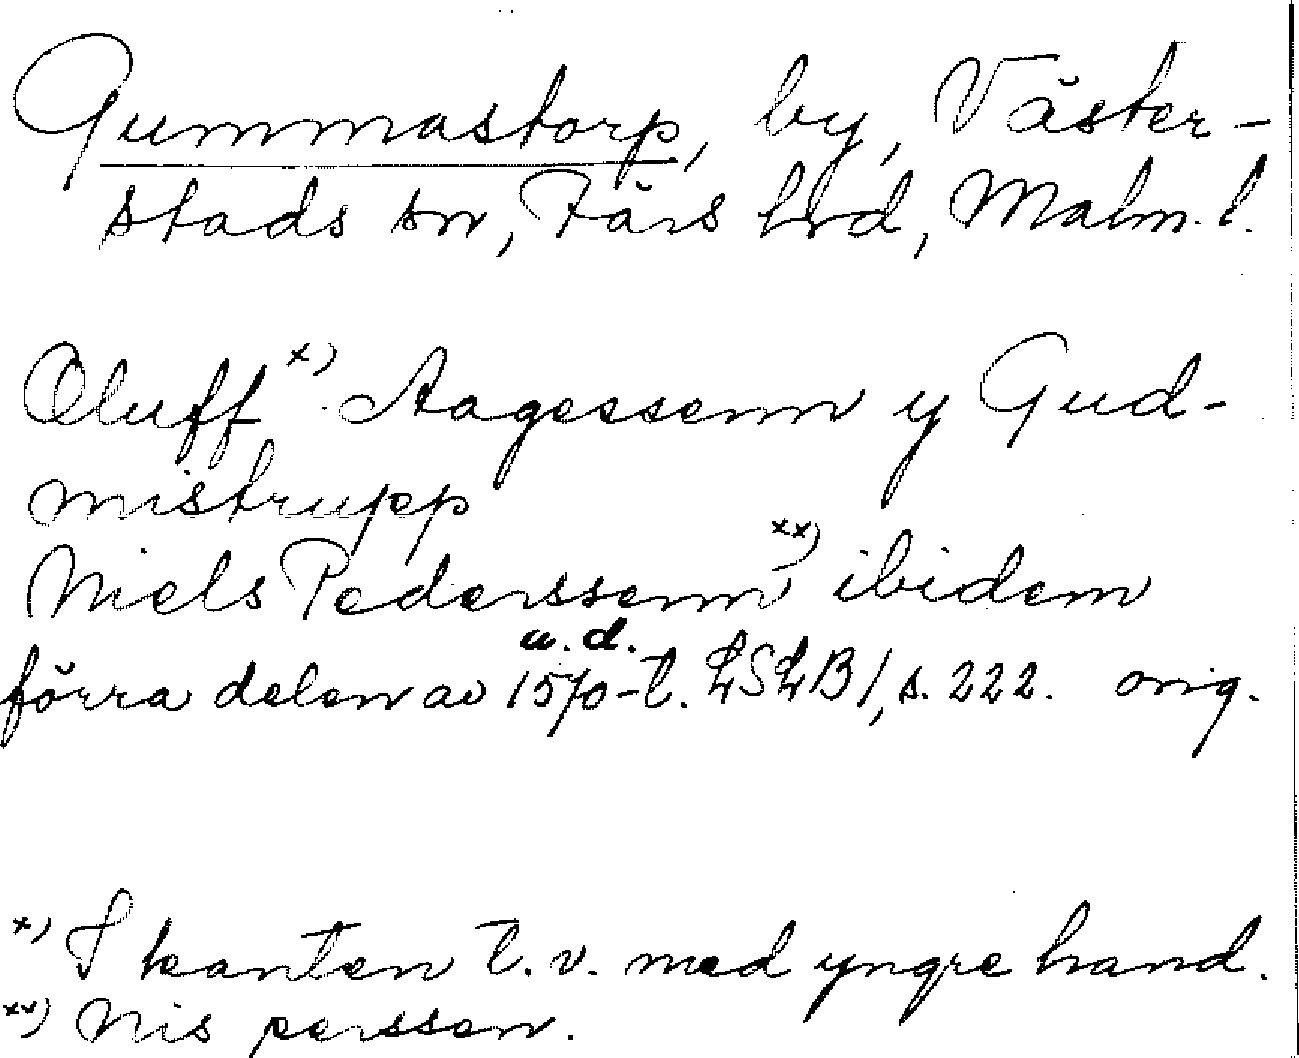 Gummastorp, by, Väster-
stads sn, Färs hrd, Malm. l.
Oluff x) Aagessenn y Gud-
mistrupp
Niels Pederssenn xx) ibidem
a. d.
förra delen av 1570-t. LSLB 1, s. 222. orig.
x) I kanten t. v. med yngre hand.
xx) Nis perssen.